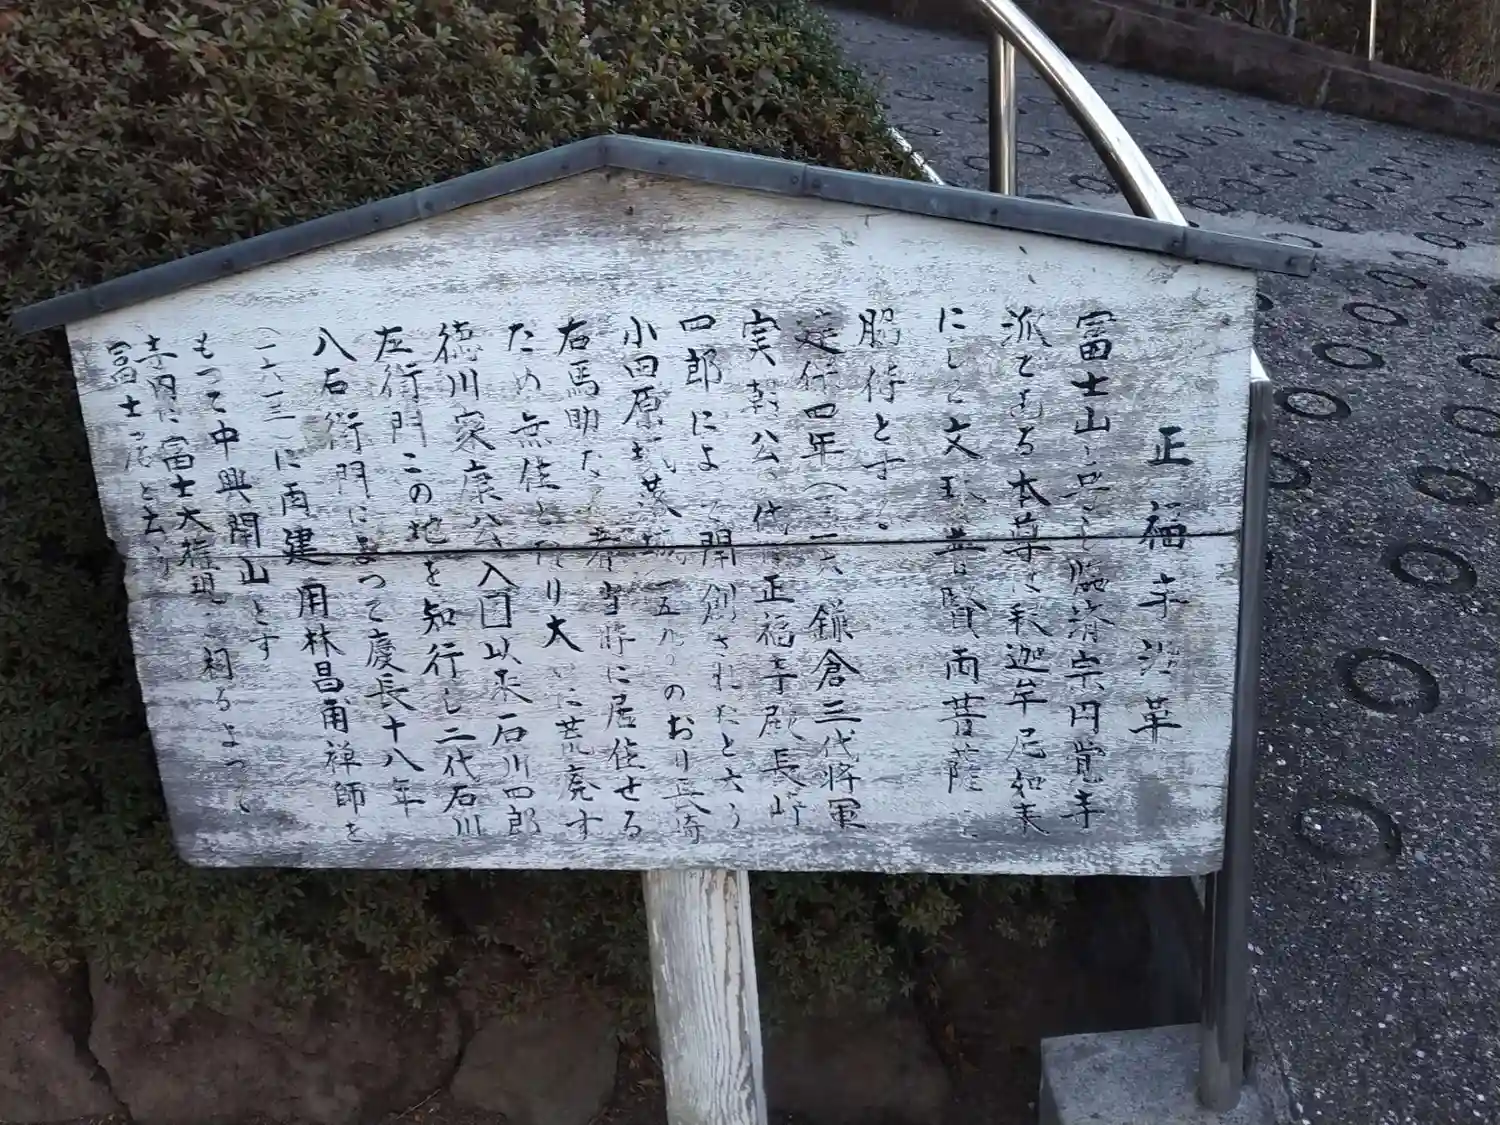 正福寺沿革
富士山と号し臨済宗円覚寺
派とする本尊は釈迦牟尼如来
にして文殊普賢両菩薩
脇侍とする
建保四年（一二一六）鎌倉三代将軍
実朝公の代正福寺殿長崎
四郎によって開創されたと云う
小田原城落城一五九〇のおり長崎
右馬助な 者当時に居住せる
ため無住となり大いに荒廃す
徳川家康公入国以来石川四郎
左衛門この地を知行し二代石川
八右衛門によって慶長十八年
（一六一三）に再建用林昌甫禅師を
もって中興開山とす
寺内に富士大権現 祠るよって
富士 と云う